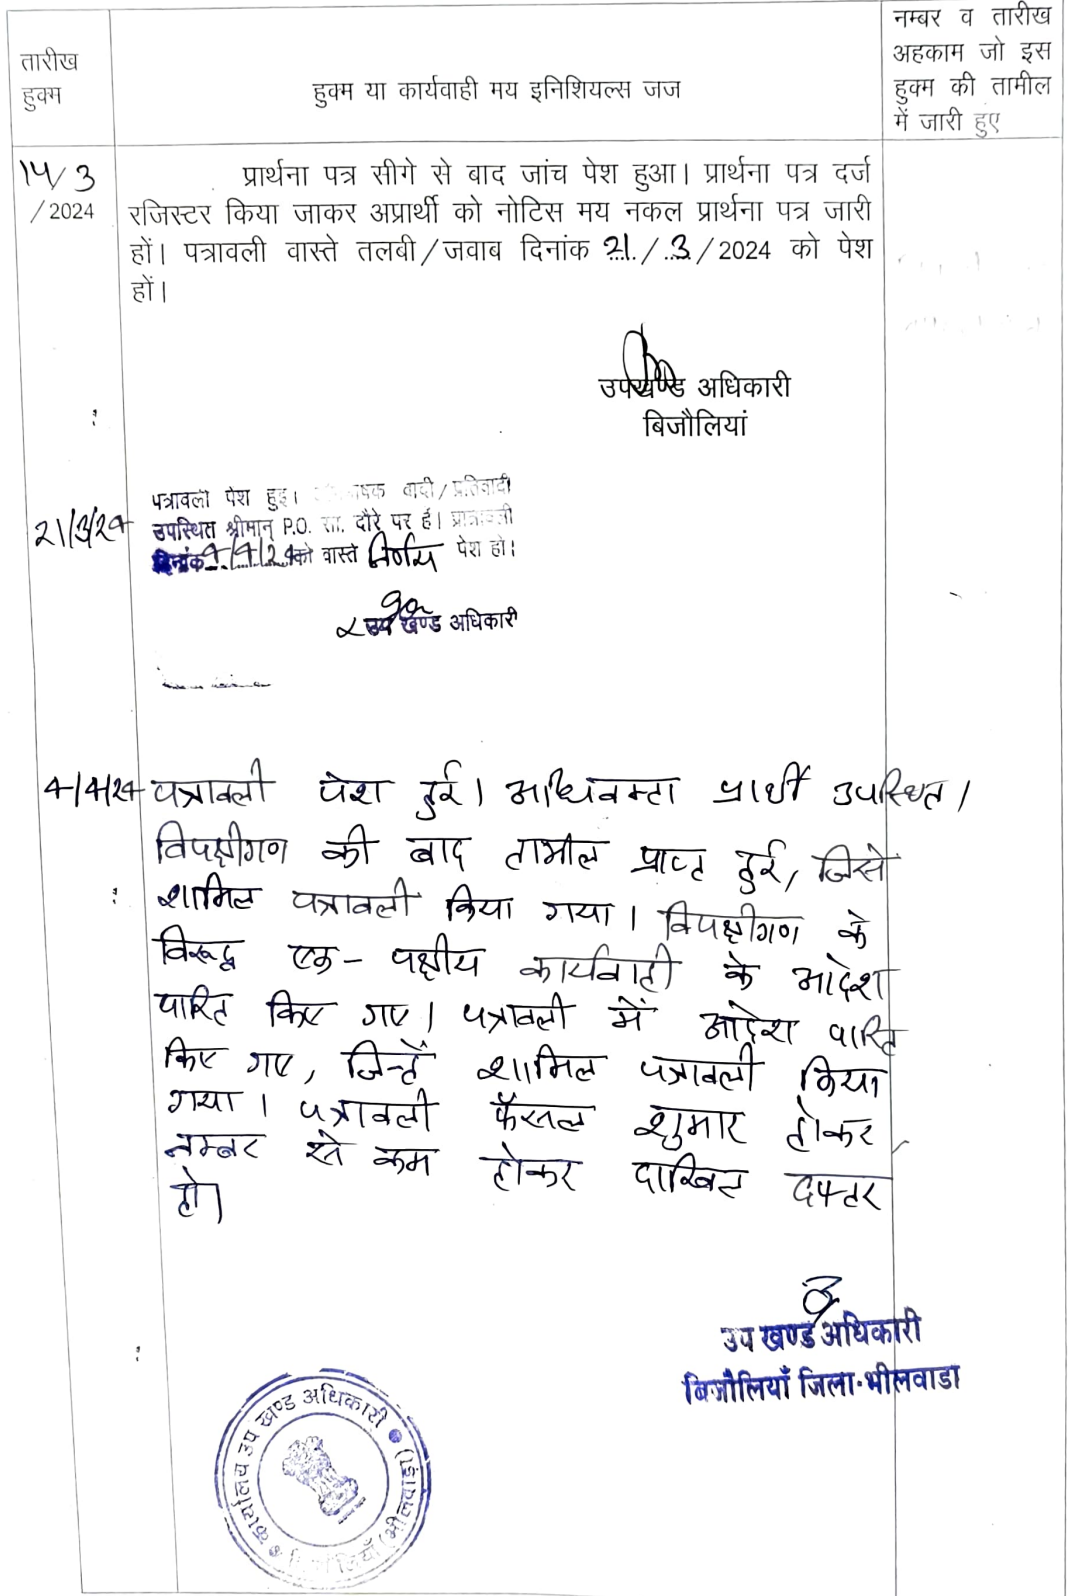 तारीख
हुक्म
हुक्म या कार्यवाही मय इनिशियल्स जज
नम्बर व तारीख
अहकाम जो इस
हुक्म की तामील
में जारी हुए
14/3
/2024
प्रार्थना पत्र सीगे से बाद जांच पेश हुआ। प्रार्थना पत्र दर्ज
रजिस्टर किया जाकर अप्रार्थी को नोटिस मय नकल प्रार्थना पत्र जारी
हों। पत्रावली वास्ते तलबी/जवाब दिनांक 21/3/2024 को पेश
हों।
उपखण्ड अधिकारी
बिजौलियां
21/3/24
पत्रावली पेश हुई। वादी/प्रतिवादी
उपस्थित श्रीमान् P.O. सा. दौरे पर हैं। पत्रावली
दिनांक 4/4/24 को वास्ते निर्णय पेश हो।
उप खण्ड अधिकारी
4/4/24
पत्रावली पेश हुई। अधिवक्ता प्रार्थी उपस्थित।
विपक्षीगण की बाद तामील प्राप्त हुई, जिसे
शामिल पत्रावली किया गया। विपक्षीगण के
विरूद्ध एक-पक्षीय कार्यवाही के आदेश
पारित किए गए। पत्रावली में आदेश पारित
किए गए, जिन्हें शामिल पत्रावली किया
गया। पत्रावली फैसल शुमार होकर
नम्बर से कम होकर दाखिल दफ्तर
हो।
उप खण्ड अधिकारी
बिजौलियाँ जिला-भीलवाडा
कार्यालय उप खण्ड अधिकारी
बिजौलियाँ (भीलवाड़ा)